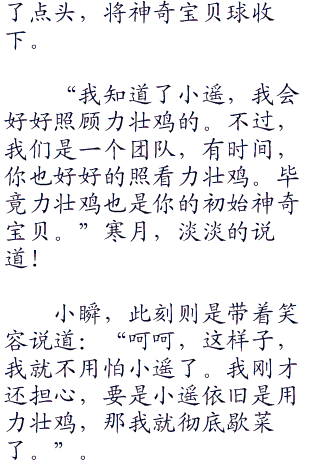 了点头，将神奇宝贝球收
下。
“我知道了小遥，我会
好好照顾力壮鸡的。不过，
我们是一个团队，有时间，
你也好好的照看力壮鸡。毕
竟力壮鸡也是你的初始神奇
宝贝。”寒月，淡淡的说
道！
小瞬，此刻则是带着笑
容说道：“呵呵，这样子，
我就不用怕小遥了。我刚才
还担心，要是小遥依旧是用
力壮鸡，那我就彻底歇菜
了。”。